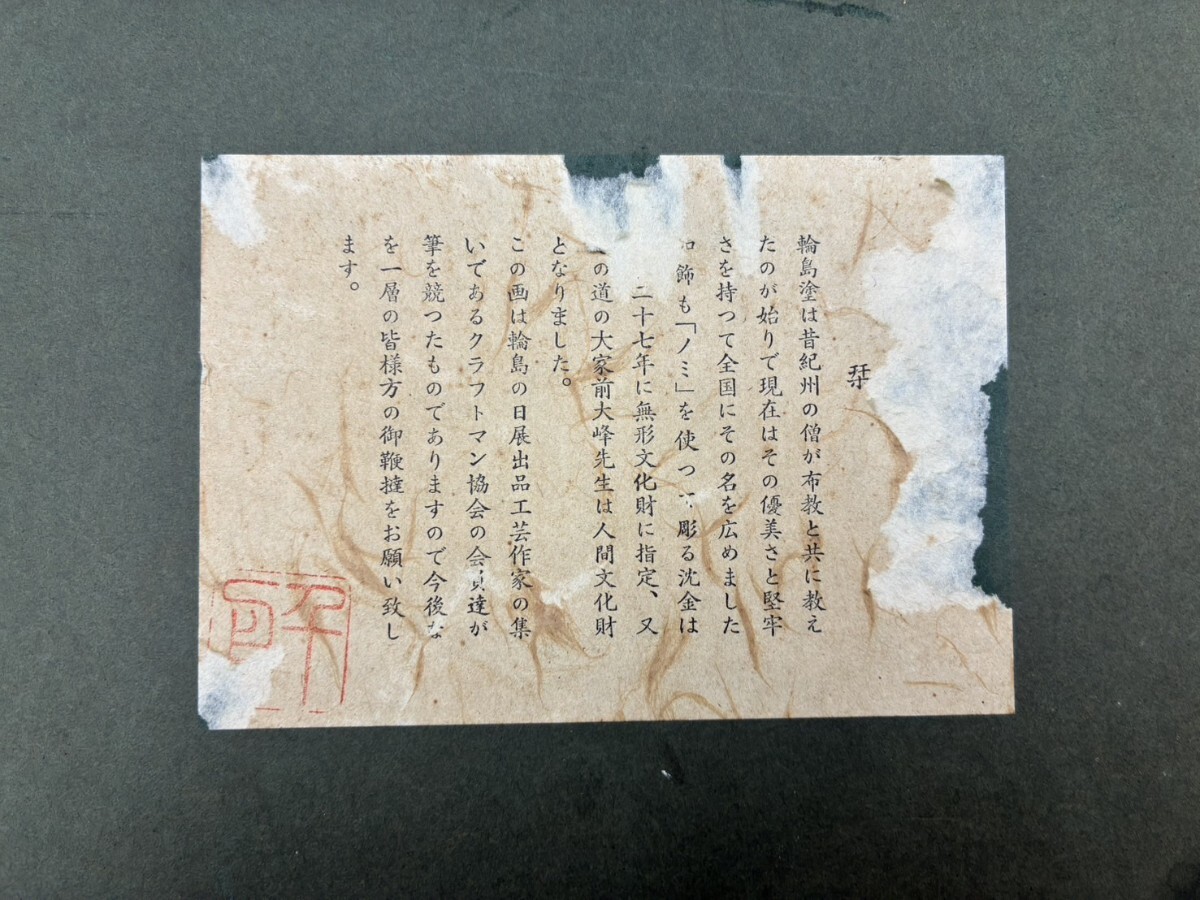 栞
輪島塗は昔紀州の僧が布教と共に教え
たのが始りで現在はその優美さと堅牢
さを持つて全国にその名を広めました
飾も「ノミ」を使つて彫る沈金は
二十七年に無形文化財に指定、又
の道の大家前大峰先生は人間文化財
となりました。
この画は輪島の日展出品工芸作家の集
いであるクラフトマン協会の会員達が
筆を競つたものでありますので今後な
を一層の皆様方の御鞭撻をお願い致し
ます。